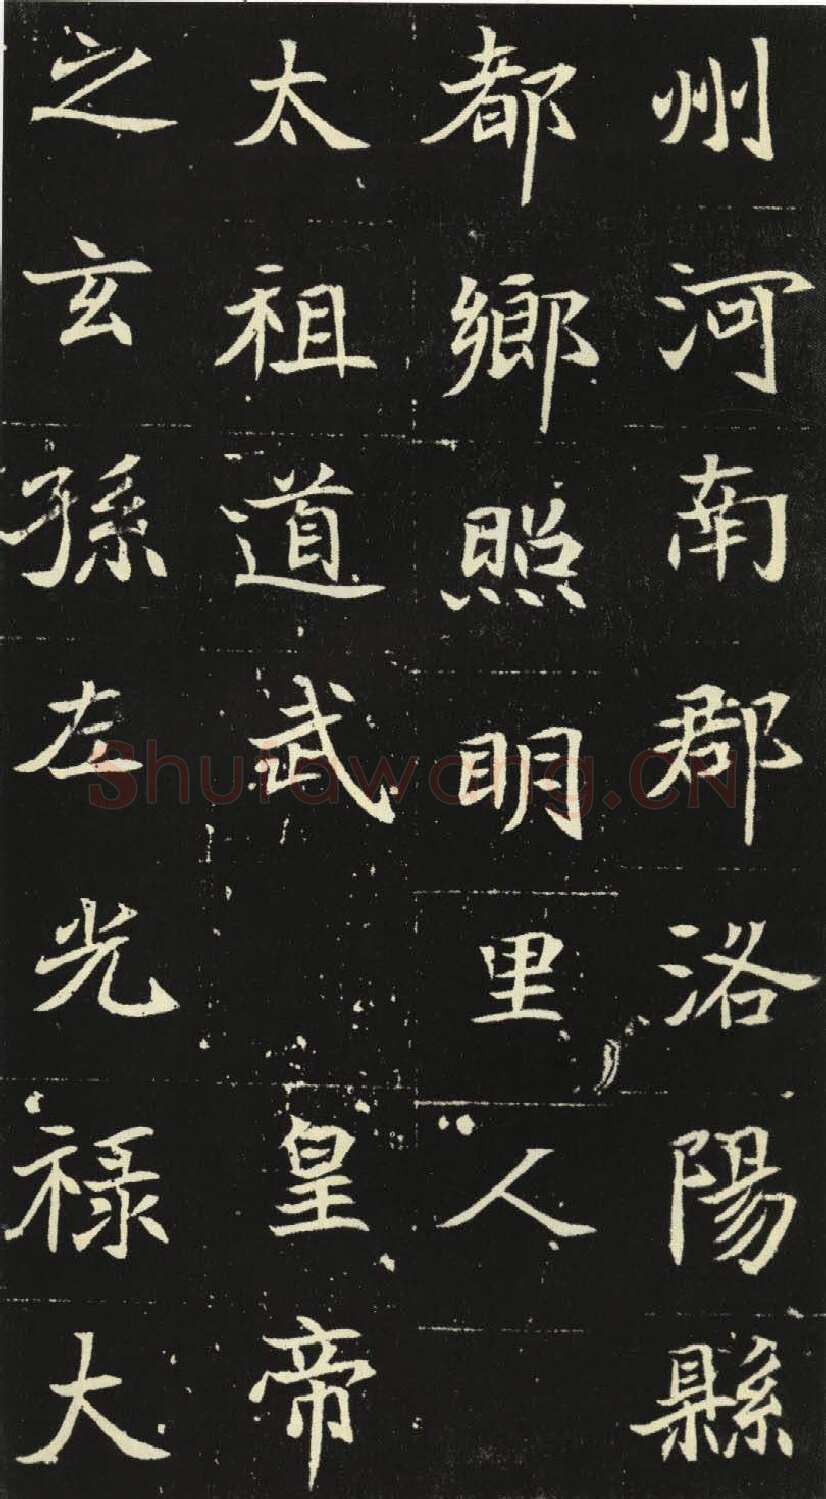 州河南郡洛陽縣
都鄉照明里人
太祖道武皇帝
之玄孫左光祿大
Shufawang.CN